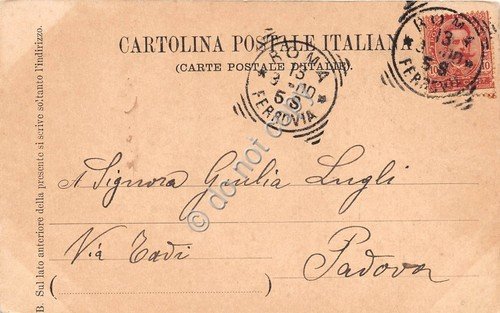 CARTOLINA POSTALE ITALIANA
(CARTE POSTALE D'ITALIE)
ROMA
13
3 00
5 S
FERROVIA
ROMA
13
3 00
5 S
FERROVIA
10
A Signora Giulia Lugli
Via Todi
Padova
N.B. Sul lato anteriore della presente si scrive soltanto l'indirizzo.
do not copy